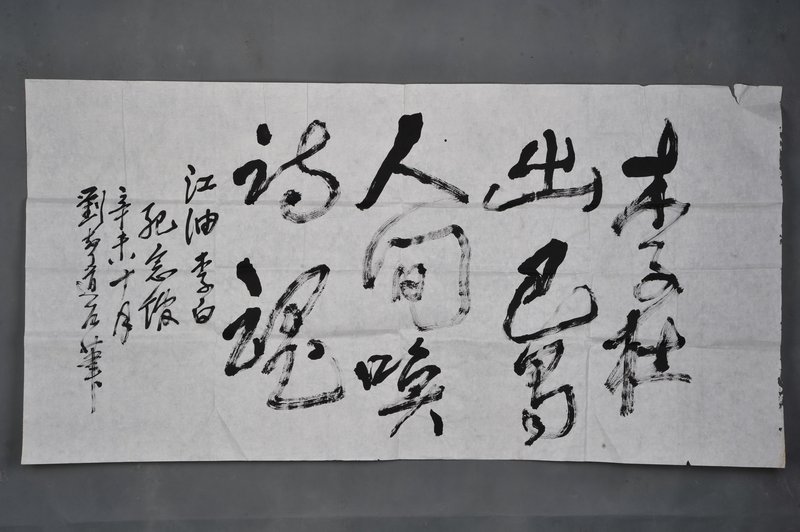 木子杜
出巴蜀
人间唤
诗魂
江油李白
纪念馆
辛未十月
劉道石筆